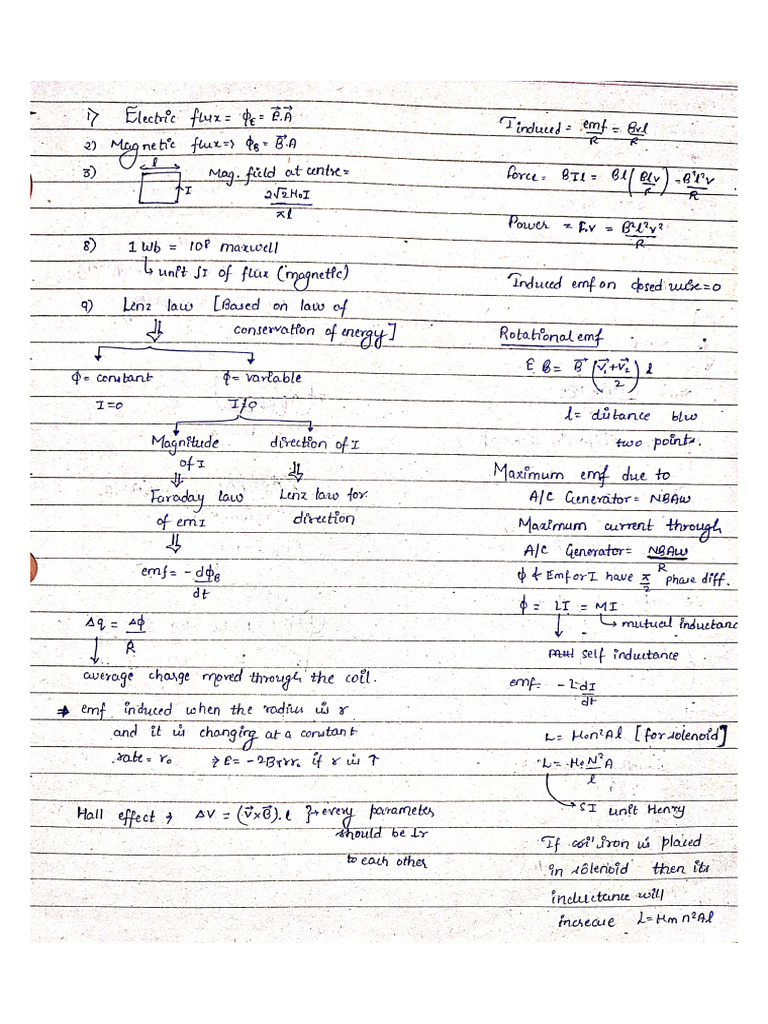 1) Electric flux = ϕE = E⃗.A⃗
2) Magnetic flux => ϕB = B⃗.A
3) l I Mag. field at centre =
2√2 μ₀I / πl
8) 1 Wb = 10⁸ maxwell
unit SI of flux (magnetic)
9) Lenz law [Based on law of
conservation of energy]
ϕ = constant ϕ = variable
I=0 I≠0
Magnitude direction of I
of I
Faraday law Lenz law for
of emI direction
emf = - dϕB / dt
Δq = Δϕ / R
average charge moved through the coil.
→ emf induced when the radius is r
and it is changing at a constant
rate = r₀ ⇒ ε = -2Bπrr₀ if r is ↑
Hall effect → ΔV = (v⃗×B⃗).l } → every parameter
should be ⊥r
to each other
I induced = emf / R = Bvl / R
force = BIl = Bl (Blv / R) = B²l²v / R
Power = F.v = B²l²v² / R
Induced emf on closed wire = 0
Rotational emf
E B = B⃗ (v⃗₁+v⃗₂ / 2) l
l = distance b/w
two points.
Maximum emf due to
A/C Generator = NBAω
Maximum current through
A/C Generator = NBAω / R
ϕ & Emf or I have π/2 phase diff.
ϕ = LI = MI
mutual inductanc
self inductance
emf = - L dI / dt
L = μ₀n²Al [for solenoid]
L = μ₀N²A / l
SI unit Henry
If coil iron is placed
in solenoid then its
inductance will
increase L = μm n²Al